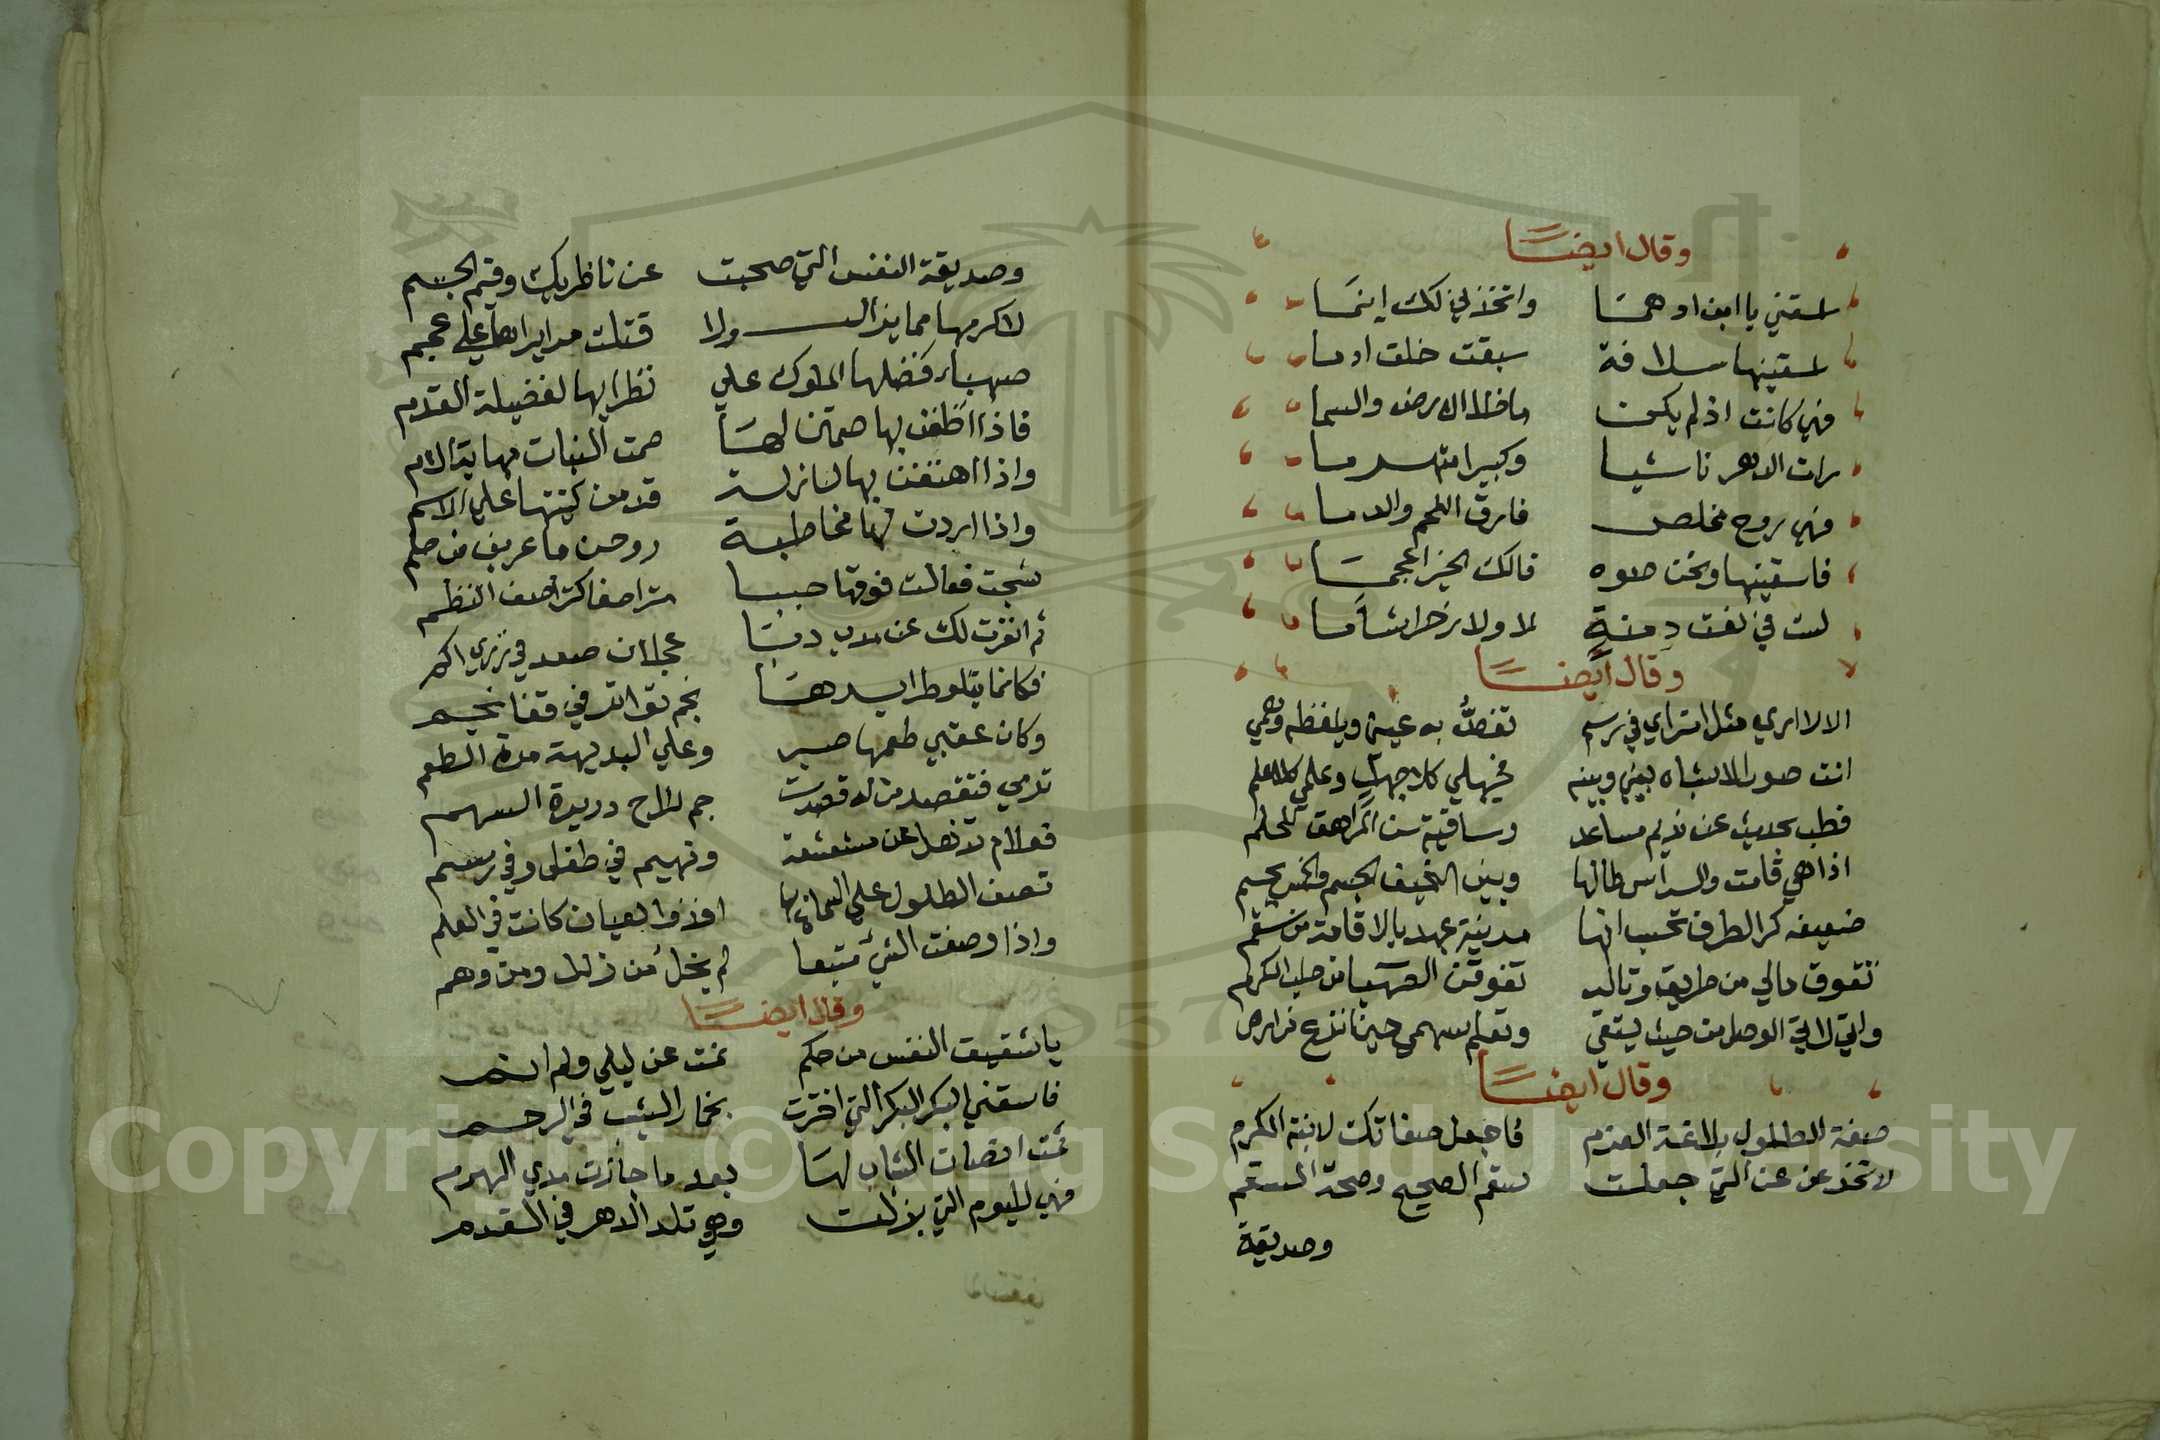 وقال ايضا
اسقني يا ابن ادهما واتخذني لك ابنما
اسقينها سلافة سبقت خلق ادما
فهي كانت اذ لم يكن ما خلا الارض والسما
رات الدهر ناشيا وكبيرا مهرما
فهي روح مخلص فارق اللحم والدما
فاسقينها وغن صوتا لك الخير اعجما
لست في نعت دمنة لا ولا زجر اشاما
وقال ايضا
الا لا اري مثل امتراي في رسم تغص به عيني ويلفظه وهمي
اتت صور الاشياه بيني وبينه فجهلي كلا جهل وعلمي كلا علم
فطب بحديث عن نديم مساعد وساقية سن المراهق للحلم
اذا هي قامت والسداسي طالها وبين النحيف الجسم والحسن الجسم
ضعيفة كر الطرف تحسب انها مدينة عهد بالافاقة من سقم
تفوق مالي من طريف وتالد تفوقي الصهباء من حلب الكرم
واني لاتي الوصل من حيث يبتغي وتعلم سهمي حين انزع من ارمي
وقال ايضا
صفة الطلول بلاغة القدم فاجعل صفاتك لابنة الكرم
لا تخدعن عن التي جعلت سقم الصحيح وصحة السقم
وصديقة
وصديقة النفس التي حجبت عن ناظريك وقيم الجسم
لا كرمها مما يذال ولا فتلت مرايرها علي عجم
صهباء فضلها الملوك علي نظرايها لفضيلة القدم
فاذا اطفن بها صمتن لها صمت البنات مهابة الام
واذا هتفن بها لنازلة قدمن كنيتها علي الاسم
واذا اردت لها مخاطبة روحن ما عزبن من حلم
شجت فعالت فوقها حببا متراصفا كتراصف النظم
ثم انفرت لك عن مدب دبا عجلان صعد في ذري اكم
فكانما يتلو طرايدها نجم تواتر في قفا نجم
وكان عقبي طعمها صبر وعلي البديهة مزة الطعم
ترمي فتقصد من له قصدت جم المراح دريرة السهم
فعلام تذهل عن مشعشعة وتهيم في طلل وفي رسم
تصف الطلول علي السماع بها افذوا العيان كانت في العلم
واذا وصفت الشي متبعا لم يخل من زلل ومن وهم
وقال ايضا
يا شقيق النفس من حكم نمت عن ليلي ولم انم
فاسقني البكر التي اختمرت بخمار الشيب في الرحم
ثمت انصات الشباب لها بعد ما جازت مدي الهرم
فهي لليوم التي بزلت وهي تلد الدهر في القدم